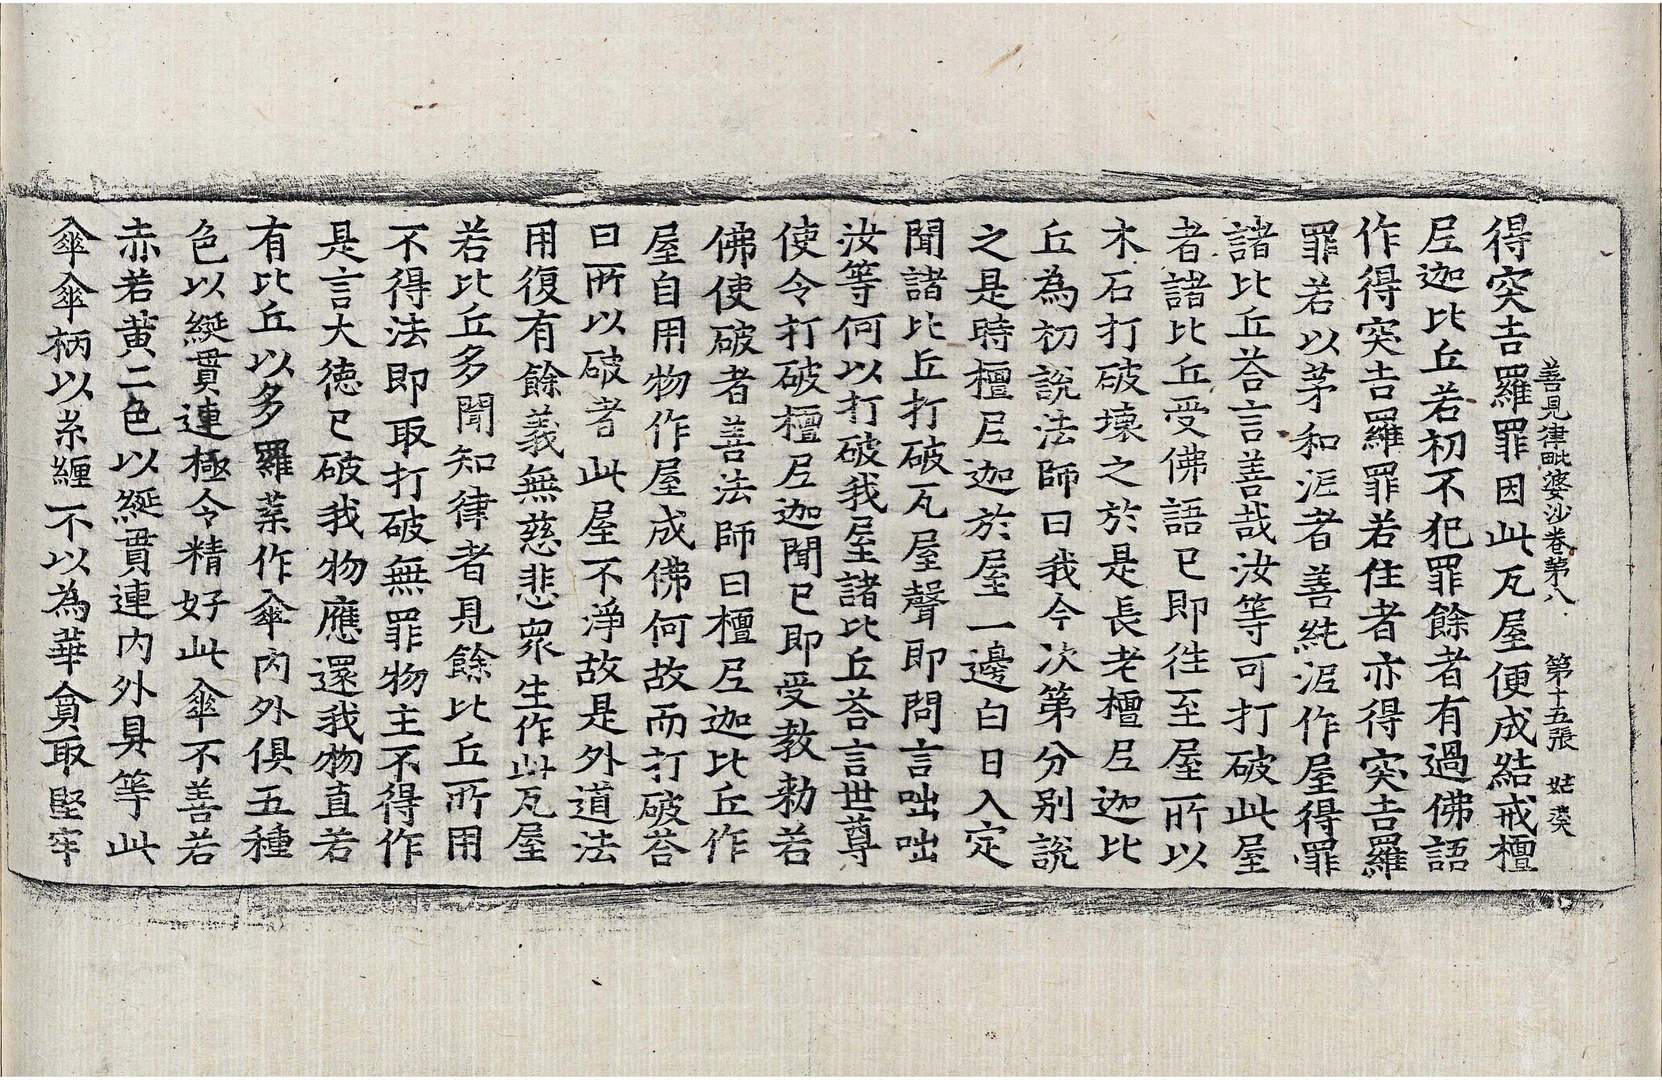 善見律毗婆沙卷第八 第十五張 姑 羡
得突吉羅罪因此瓦屋便成結戒檀
尼迦比丘若初不犯罪餘者有過佛語
作得突吉羅罪若住者亦得突吉羅
罪若以茅和泥者善純泥作屋得罪
諸比丘荅言善哉汝等可打破此屋
者諸比丘受佛語已即往至屋所以
木石打破壞之於是長老檀尼迦比
丘為初說法師曰我今次第分别說
之是時檀尼迦於屋一邊白日入定
聞諸比丘打破瓦屋聲即問言咄咄
汝等何以打破我屋諸比丘荅言世尊
使令打破檀尼迦聞已即受教勑若
佛使破者善法師曰檀尼迦比丘作
屋自用物作屋成佛何故而打破荅
曰所以破者此屋不淨故是外道法
用復有餘義無慈悲衆生作此瓦屋
若比丘多聞知律者見餘比丘所用
不得法即取打破無罪物主不得作
是言大德已破我物應還我物直若
有比丘以多羅葉作傘内外俱五種
色以綖貫連極令精好此傘不善若
赤若黄二色以綖貫連内外具等此
傘傘柄以糸纏不以為華貪取堅牢